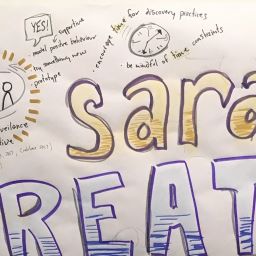 YES!
supportive
model positive behaviour
try something new
prototype
encourage time for discovery practices
be mindful of time constraints
sara
REAT